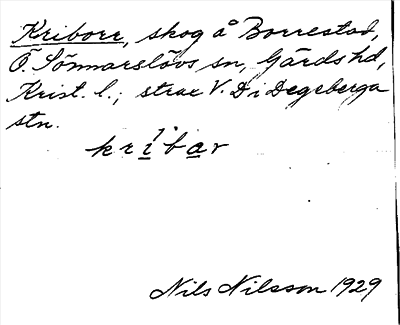 Kriborr, skog å Borrestad,
Ö. Sönnarslövs sn, Gärds hd,
Krist. l.; strax V. D i Degeberga
stn.
kribar
Nils Nilsson 1929